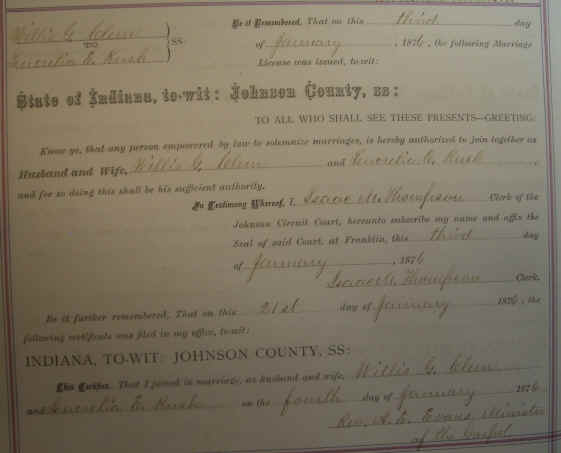 Willis G. Clem
TO
Lucretia E. Rush
SS:
Be it Remembered, That on this third day
of January, 1876, the following Marriage
License was issued, to-wit:
State of Indiana, to-wit: Johnson County, ss:
TO ALL WHO SHALL SEE THESE PRESENTS—GREETING:
Know ye, that any person empowered by law to solemnize marriages, is hereby authorized to join together as
Husband and Wife, Willis G. Clem and Lucretia E. Rush,
and for so doing this shall be his sufficient authority.
In Testimony Whereof, I, Isaac M. Thompson Clerk of the
Johnson Circuit Court, hereunto subscribe my name and affix the
Seal of said Court, at Franklin, this third day
of January, 1876
Isaac M. Thompson Clerk.
Be it further remembered, That on this 21st day of January 1876, the
following certificate was filed in my office, to-wit:
INDIANA, TO-WIT: JOHNSON COUNTY, SS:
This Certifies, That I joined in marriage, as husband and wife, Willis G. Clem
and Lucretia E. Rush on the fourth day of January 1876
Rev. A. E. Evans Minister
of the Gospel